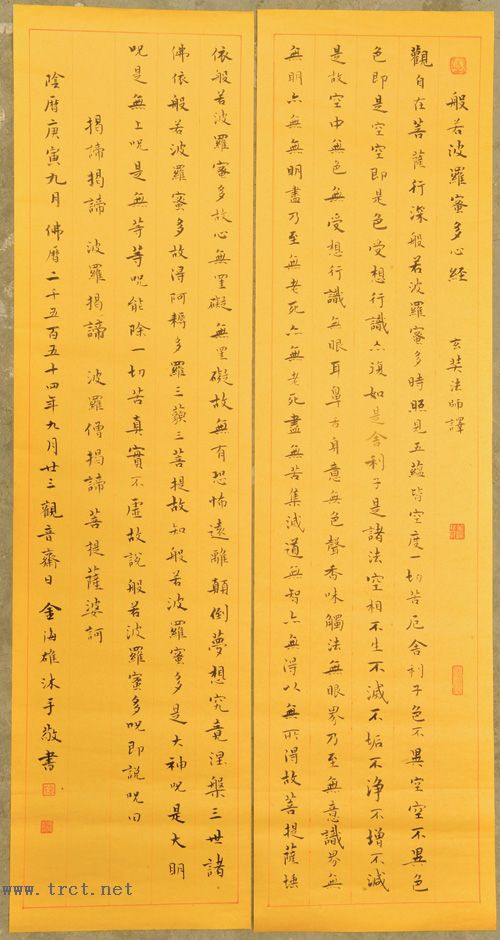 般若波羅蜜多心經 玄奘法師譯
觀自在菩薩行深般若波羅蜜多時照見五蘊皆空度一切苦厄舍利子色不異空空不異色
色即是空空即是色受想行識亦復如是舍利子是諸法空相不生不滅不垢不淨不增不減
是故空中無色無受想行識無眼耳鼻舌身意無色聲香味觸法無眼界乃至無意識界無
無明亦無無明盡乃至無老死亦無老死盡無苦集滅道無智亦無得以無所得故菩提薩埵
依般若波羅蜜多故心無罣礙無罣礙故無有恐怖遠離顛倒夢想究竟涅槃三世諸
佛依般若波羅蜜多故得阿耨多羅三藐三菩提故知般若波羅蜜多是大神呪是大明
呪是無上呪是無等等呪能除一切苦真實不虛故說般若波羅蜜多呪即說呪曰
揭諦揭諦 波羅揭諦 波羅僧揭諦 菩提薩婆訶
陰曆庚寅九月 佛曆二千五百五十四年九月廿三觀音齋日 金海雄沐手敬書
www.trct.net